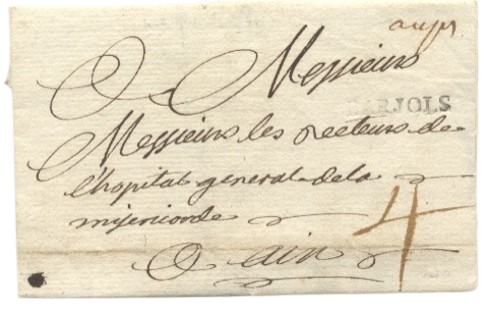 aups
A Messieurs
BARJOLS
Messieurs les recteurs de
l'hopital general de la
misericorde
A aix
4